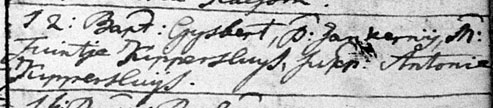 12: Bapt: Gysbert, P: Jan kernij, M:
Fuintje Kippersluijs, susp: Antonie
Kippersluijs.